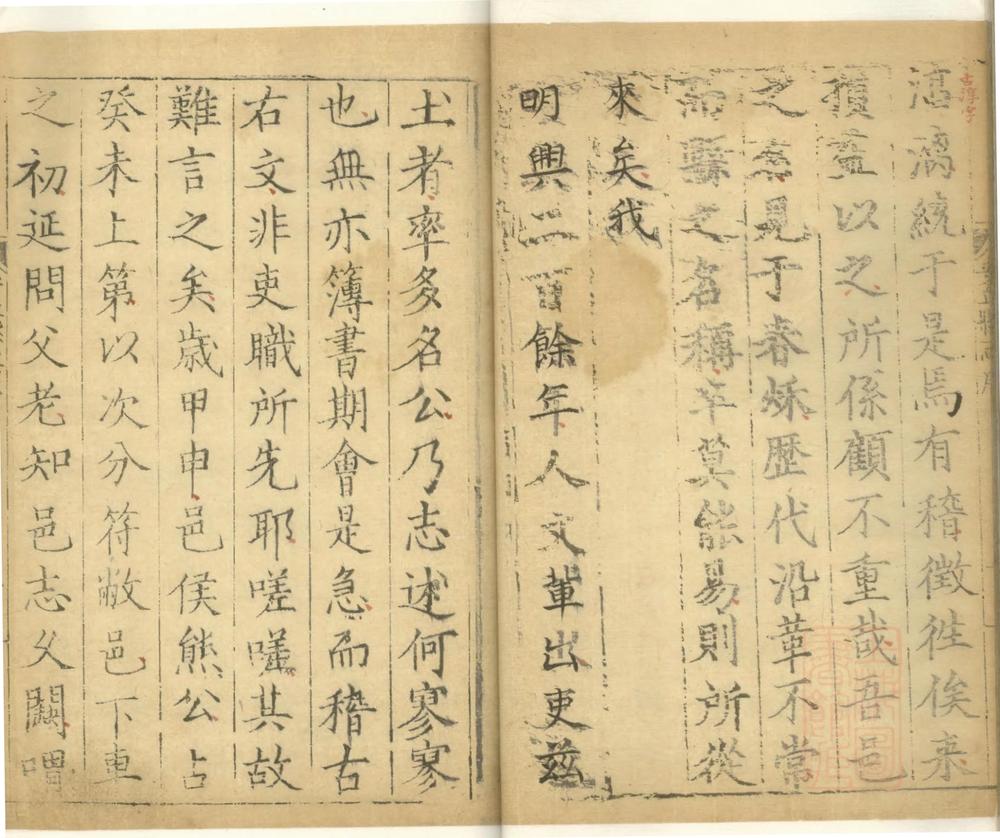 漓統于是焉有稽徵徃俟来
以之所係顧不重哉吾邑
之見于春秋歷代沿革不常
之名稱卒莫能易則所從
來矣我
明興二百餘年人文輩出吏兹
土者率多名公乃志述何寥寥
也無亦簿書期會是急而稽古
右文非吏職所先耶嗟嗟其故
難言之矣歲甲申邑侯熊公占
癸未上第以次分符敝邑下車
之初延問父老知邑志乆闕喟
古淳字